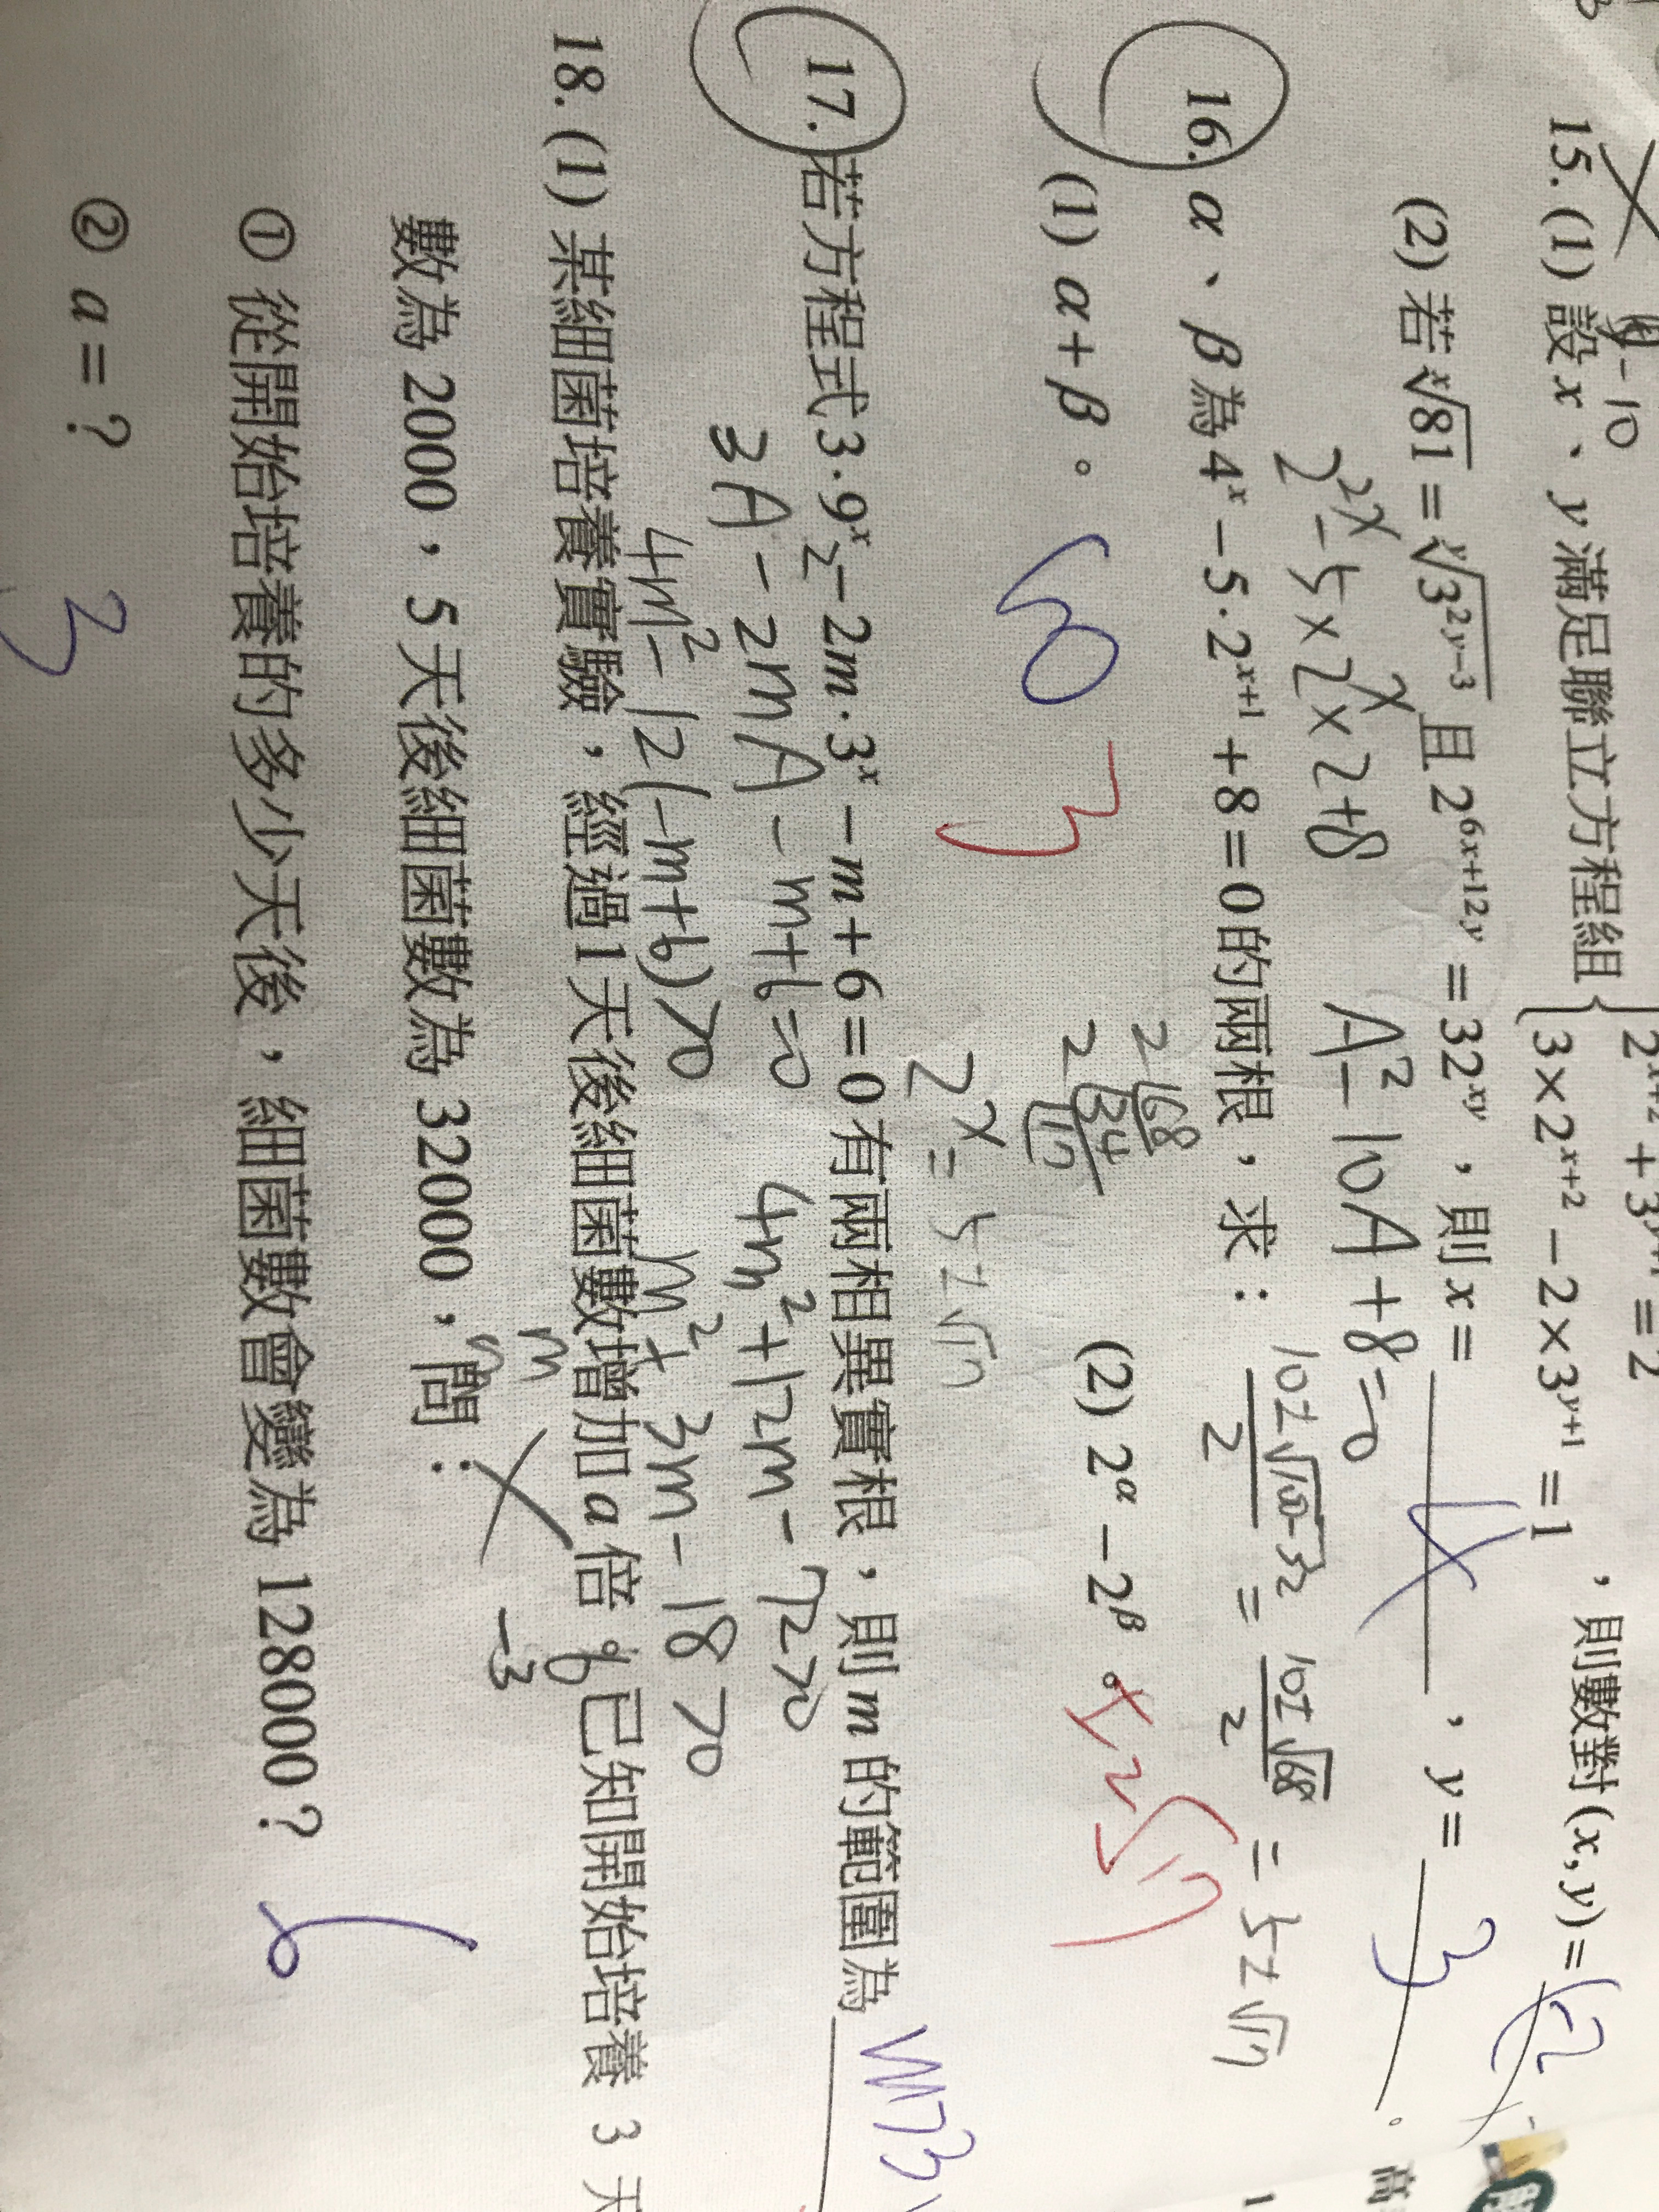 2^{x+2} + 3^{y+1} = 2
15. (1) 設 x、y 滿足聯立方程組 { 3×2^{x+2} − 2×3^{y+1} = 1 ，則數對 (x, y) =
(2) 若 \sqrt[x]{81} = \sqrt[y]{3^{2y−3}} 且 2^{6x+12y} = 32^{xy}，則 x = 4，y = 3。
2^{2x} - 5×2^x×2+8 A²-10A+8=0
16. α、β 為 4^x − 5·2^{x+1} + 8 = 0 的兩根，求：
\frac{10±\sqrt{100-32}}{2} = \frac{10±\sqrt{68}}{2} = 5±\sqrt{17}
(1) α + β。 3 (2) 2^α − 2^β。 ±2√17
2 68
2 34
17
2^x = 5±√17
17. 若方程式 3·9^x − 2m·3^x − m + 6 = 0 有兩相異實根，則 m 的範圍為
3A² - 2mA - m+6=0 4m²+12m-72>0
4m²-12(-m+6)>0 m²+3m-18>0
m 6
m -3
18. (1) 某細菌培養實驗，經過 1 天後細菌數增加 a 倍。已知開始培養 3 天
數為 2000，5 天後細菌數為 32000，問：
① 從開始培養的多少天後，細菌數會變為 128000？ 6
② a = ？ 3